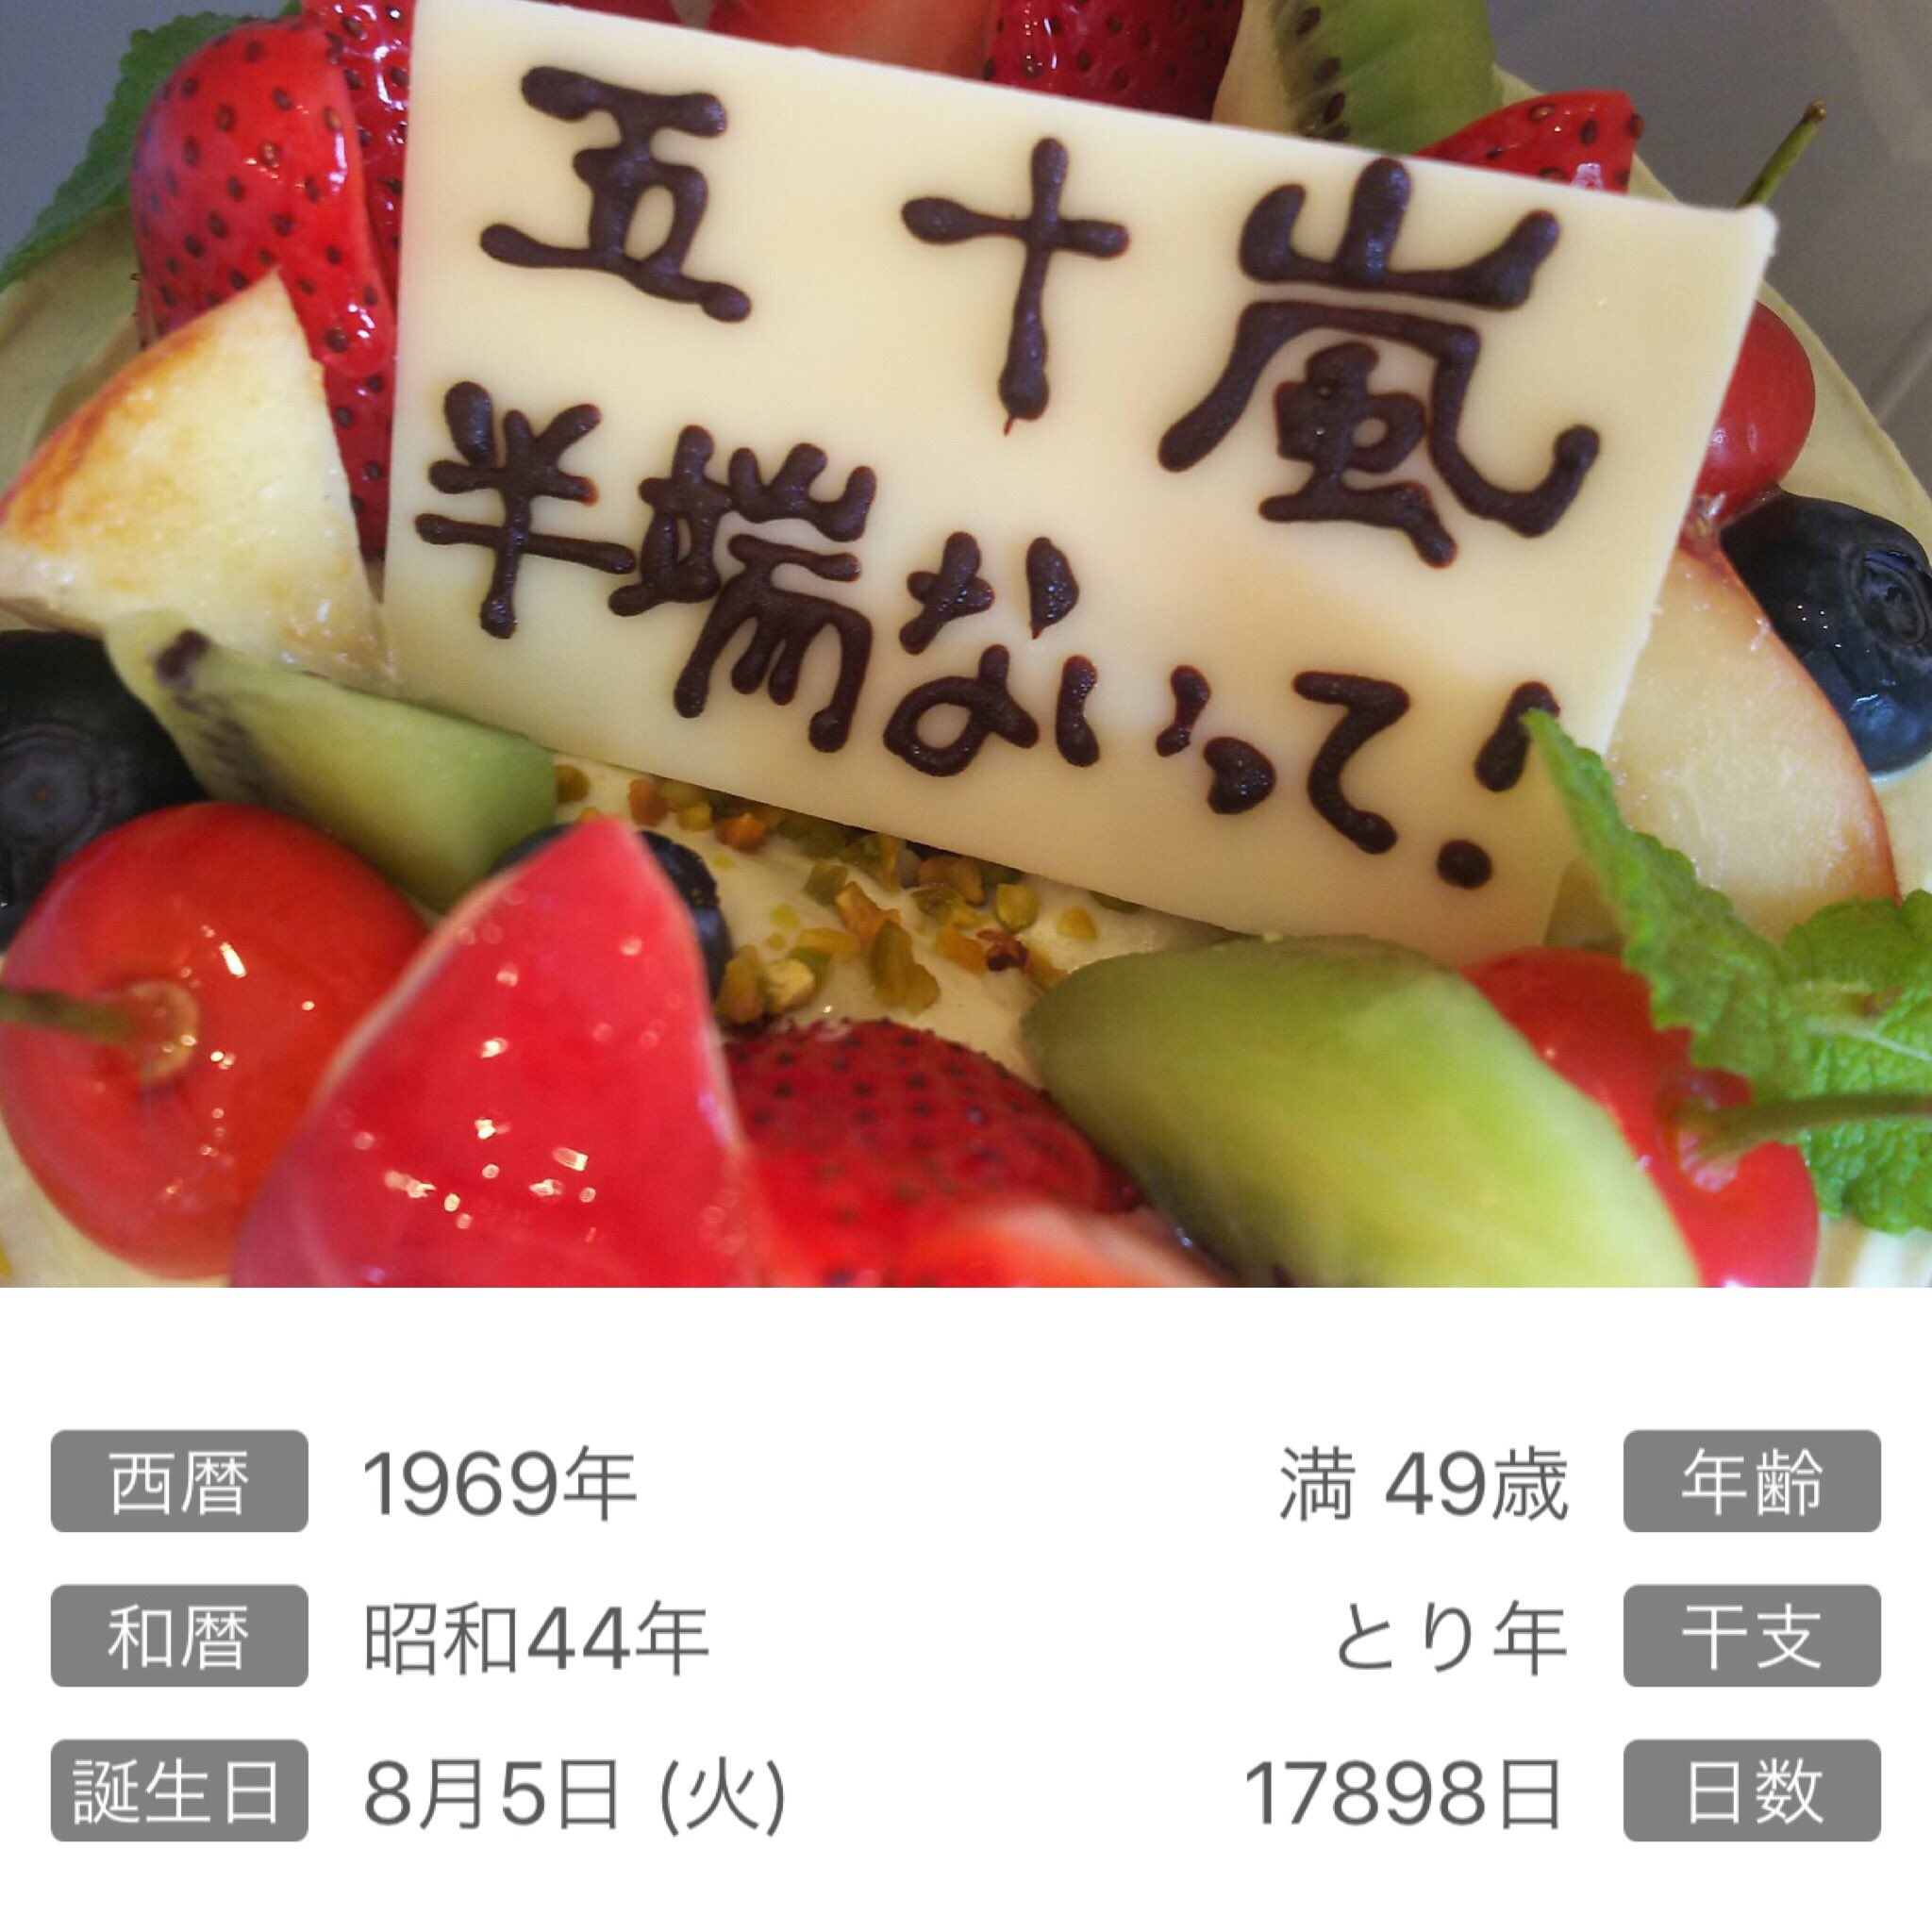 五十嵐
半端ないって!
西暦 1969年 満 49歳 年齢
和暦 昭和44年 とり年 干支
誕生日 8月5日 (火) 17898日 日数